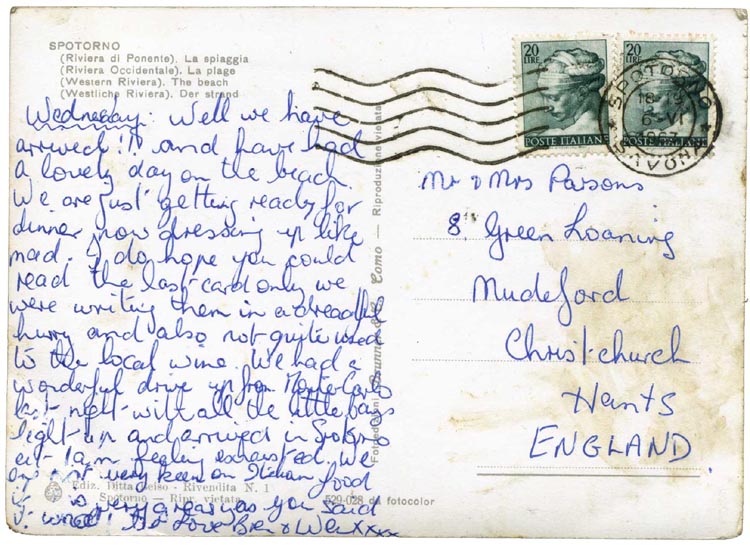 SPOTORNO
(Riviera di Ponente). La spiaggia
(Riviera Occidentale). La plage
(Western Riviera). The beach
(Westliche Riviera). Der strand
Wednesday: Well we have
arrived!! and have had
a lovely day on the beach.
We are just getting ready for
dinner now dressing up like
mad. I do hope you could
read the last card only we
were writing them in a dreadful
hurry and also not quite used
to the local wine. We had a
wonderful drive up from Monte Carlo
last night with all the little bays
light up and arrived in Spotorno
at 1am feeling exhausted. We
are not very keen on Italian food
it is very greasy as you said
it would! Love Bren & Wen xxxx
Ediz. Ditta Celso - Rivendita N. 1
Spotorno - Ripr. vietata
529-028 da fotocolor
Fotoedizioni Brunner & C. Como — Riproduzione vietata
20
LIRE
POSTE ITALIANE
20
LIRE
POSTE ITALIANE
SPOTORNO
18-19
6-VI
1967
SAVONA
Mr & Mrs Parsons
8, Green Loaning
Mudeford
Christchurch
Hants
ENGLAND.